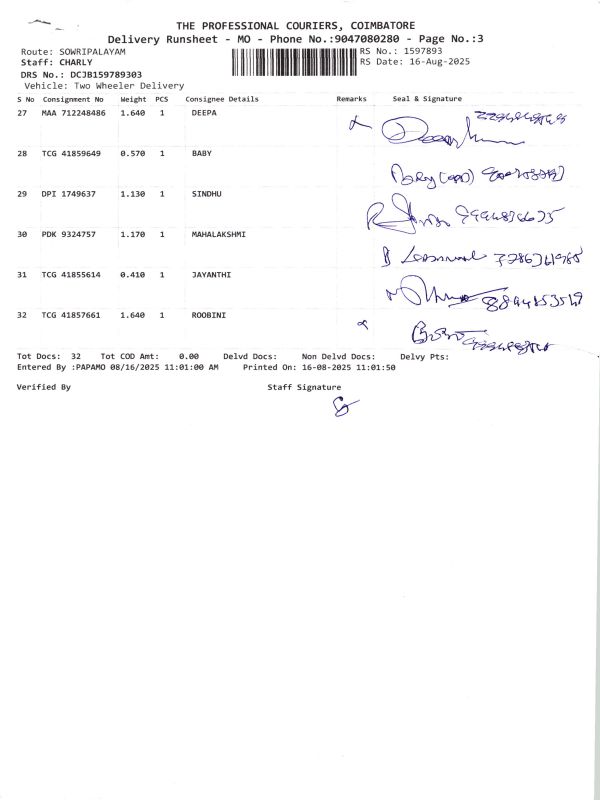 THE PROFESSIONAL COURIERS, COIMBATORE
Delivery Runsheet - MO - Phone No.:9047080280 - Page No.:3
Route: SOWRIPALAYAM RS No.: 1597893
Staff: CHARLY RS Date: 16-Aug-2025
DRS No.: DCJB159789303
Vehicle: Two Wheeler Delivery
S No Consignment No Weight PCS Consignee Details Remarks Seal & Signature
27 MAA 712248486 1.640 1 DEEPA
28 TCG 41859649 0.570 1 BABY
Baby
29 DPI 1749637 1.130 1 SINDHU
30 PDK 9324757 1.170 1 MAHALAKSHMI
31 TCG 41855614 0.410 1 JAYANTHI
32 TCG 41857661 1.640 1 ROOBINI
Tot Docs: 32 Tot COD Amt: 0.00 Delvd Docs: Non Delvd Docs: Delvy Pts:
Entered By :PAPAMO 08/16/2025 11:01:00 AM Printed On: 16-08-2025 11:01:50
Verified By Staff Signature